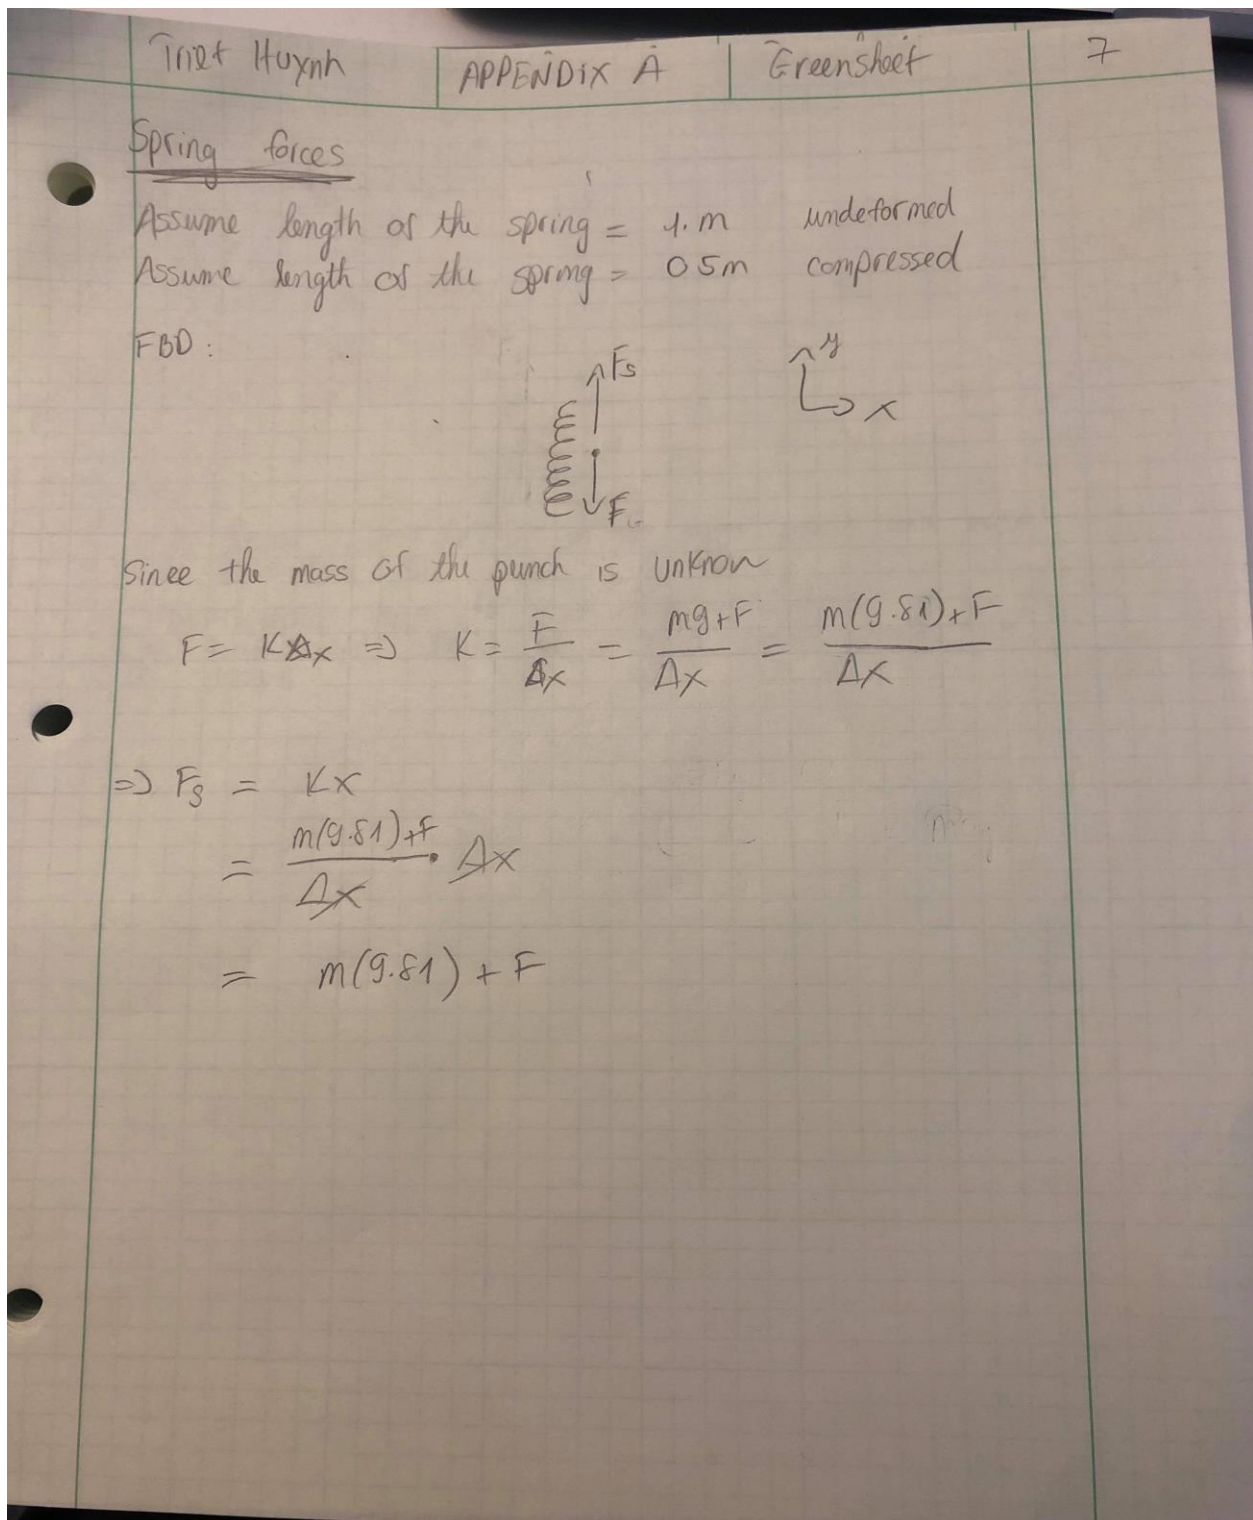 Triet Huynh APPENDIX A Greensheet 7
Spring forces
Assume length of the spring = 1.m undeformed
Assume length of the spring = 05m compressed
FBD:
Fs y
x
F
Since the mass of the punch is unknow
F = KΔx ⇒ K = F/Δx = mg+F/Δx = m(9.81)+F/Δx
⇒ Fs = Kx
= m(9.81)+F/Δx · Δx
= m(9.81) + F